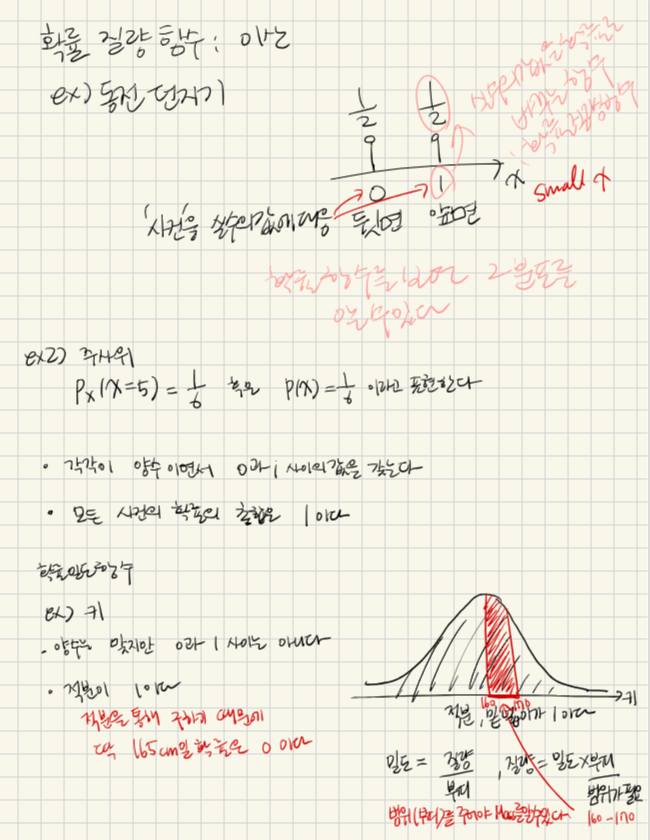 확률 질량 함수 : 이산
ex) 동전 던지기
1/2 1/2
0 1 x small x
'사건'을 실수의 값에 대응 뒷면 앞면
확률 함수를 보면 그 분포를
알 수 있다
ex2) 주사위
Px(X=5) = 1/6 혹은 P(X) = 1/6 이라고 표현한다
• 각각이 양수이면서 0과 1 사이의 값을 갖는다
• 모든 사건의 확률의 총합은 1 이다
확률밀도함수
ex) 키
- 양수는 맞지만 0과 1 사이는 아니다
• 적분이 1 이다
적분을 통해 구하기 때문에
딱 165cm일 확률은 0 이다
160 170 키
적분, 밑넓이가 1 이다
밀도 = 질량/부피 , 질량 = 밀도 × 부피
범위가 필요
범위(부피)를 주어야 Mass를 알 수 있다 160-170